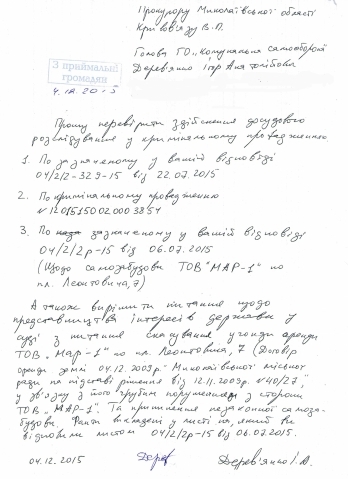 Прокурору Миколаївської області
Кривов'язу В.П.
Голова ГО „комунальна самооборона
Дерев'янко Ігор Анатолійович
З приймальні
громадян
4.12.2015
Прошу перевірити здійснення досудового
розслідування у кримінальному провадженню
1. По зазначеному у вашій відповіді
04/2/2-323-15 від 22.07.2015
2. По кримінальному провадженню
№ 12015150020003854
3. По зазначеному у вашій відповіді
04/2/2р-15 від 06.07.2015
(щодо самозабудови ТОВ "МАР-1" по
пл. Леонтовича,7)
А також вирішити питання щодо
представництва інтересів держави у
суді з питання скасування угоди оренди
ТОВ „Мар-1" по пл. Леонтовича, 7 (Договір
оренди землі 04.12.2009р. Миколаївської міської
ради на підставі рішення від 12.11.2009р. №40/27,
у зв'язку з його грубим порушенням з сторони
ТОВ „МАР-1". Та припинення незаконної самоза-
будови. Факти викладені у листі на, який ви
відповіли листом 04/2/2р-15 від 06.07.2015.
04.12.2015 Дерев'янко І.А.